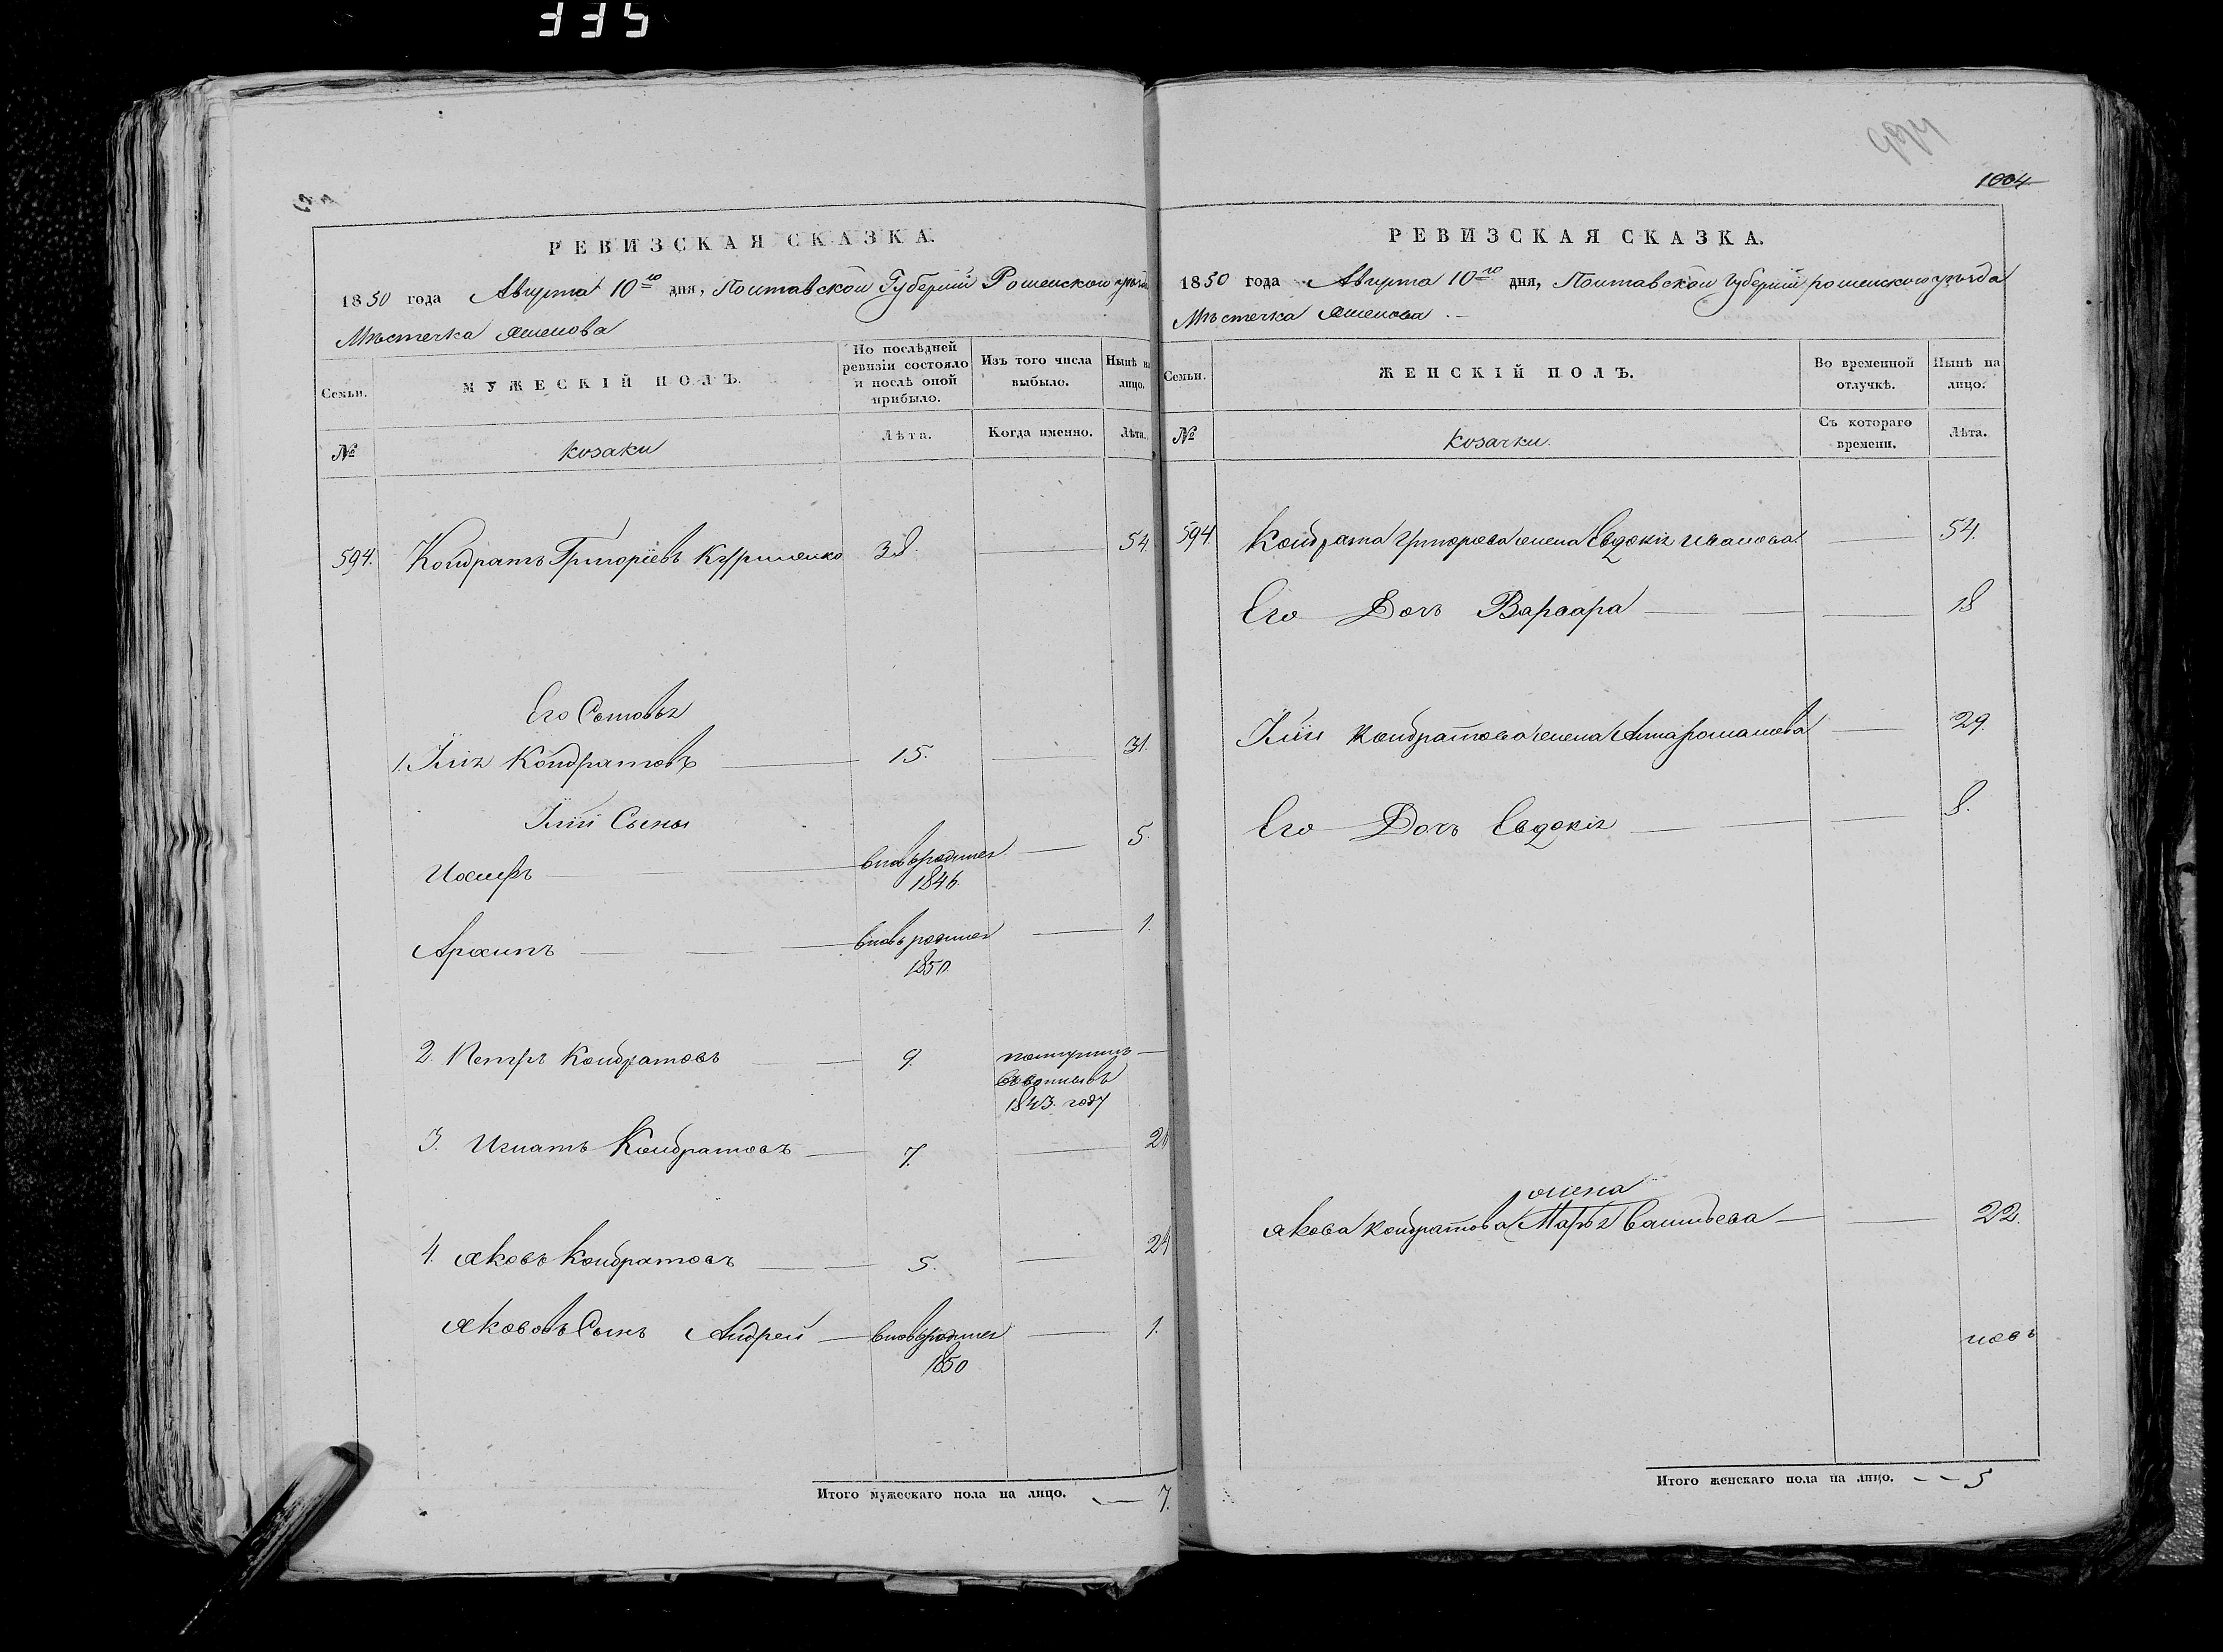 335
1004
РЕВИЗСКАЯ СКАЗКА.
1850 года Августа 10го дня, Полтавской Губерніи Роменского уѣзда
Мѣстечка Смелова
Семьи.
МУЖЕСКІЙ ПОЛЪ.
По послѣдней ревизіи состояло и послѣ оной прибыло.
Изъ того числа выбыло.
Нынѣ на лицо.
№
козаки
Лѣта.
Когда именно.
Лѣта.
594. Кондратъ Григоріевъ 38. 54.
Его Сыновья
1. Илія Кондратовъ 15. 31.
Иліи Сыны
Иосифъ вновьродился 1846. 5.
Архипъ вновьродился 1850 1.
2. Петръ Кондратовъ 9. 1843. году
3. Игнатъ Кондратовъ 7.
4. Яковъ Кондратовъ 5. 24
Яковавъ Сынъ Андрей вновьродился 1850 1.
Итого мужескаго пола на лицо. 7.
РЕВИЗСКАЯ СКАЗКА.
1850 года Августа 10го дня, Полтавской губерніи роменского уѣзда
Мѣстечка Смелова
Семьи.
ЖЕНСКІЙ ПОЛЪ.
Во временной отлучкѣ.
Нынѣ на лицо.
№
козачки.
Съ котораго времени.
Лѣта.
594. Кондрата Григорьева жена Евдокія иванова 54.
Его Дочь Варвара 18
Иліи Кондратова жена Анна романова 29.
Его Дочь Евдокія 8.
жена
Якова кондратова Марья Васильева 22.
Итого женскаго пола на лицо. 5